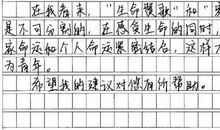 在我看来，“生命赞歌”和“
是不可分割的，在感受生命的同时，
家命运和个人命运紧密结合，这样才
为青年。
希望我的建议对您有所帮助。